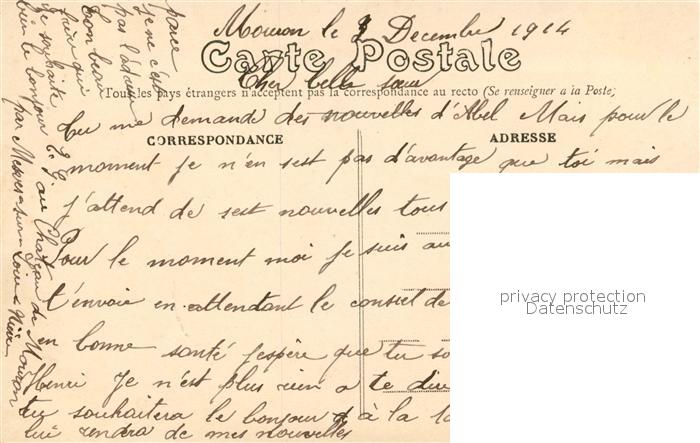 Mouron le 2 Decembre 1914
Carte Postale
Cher belle sœur
Tous les pays étrangers n'acceptent pas la correspondance au recto (Se renseigner à la Poste)
CORRESPONDANCE
ADRESSE
tu me demande des nouvelles d'Abel Mais pour le
moment je n'en sest pas d'avantage que toi mais
j'attend de sest nouvelles tous
Pour le moment moi je suis au
t'envoie en attendant le conseil de
en bonne santé j'espère que tu so
Henri Je n'est plus rien a te dire
tu souhaitera le bonjour à la
lui rendra de mes nouvelles
parce
je ne
pas l'
ton beau
frère qui
te souhaite
bien le bonjour L. G. au Chateau de Mouron
par Mesves sur Loire Nièvre
privacy protection
Datenschutz